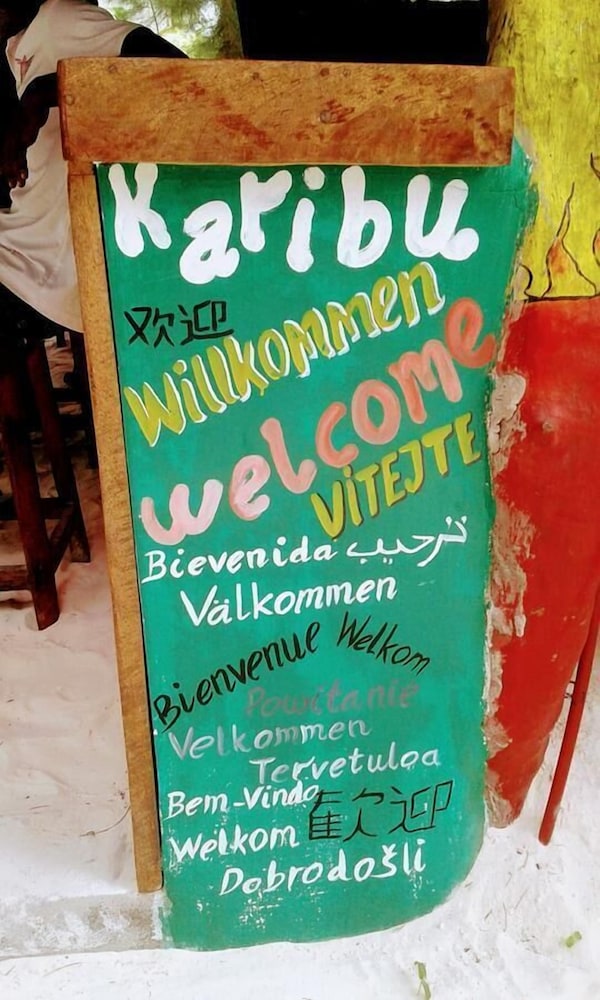 Karibu
欢迎
Willkommen
welcome
VITEJTE
Bievenida ترحيب
Välkommen
Bienvenue Welkom
Powitanie
Velkommen
Tervetuloa
Bem-Vindo 歓迎
Welkom
Dobrodošli